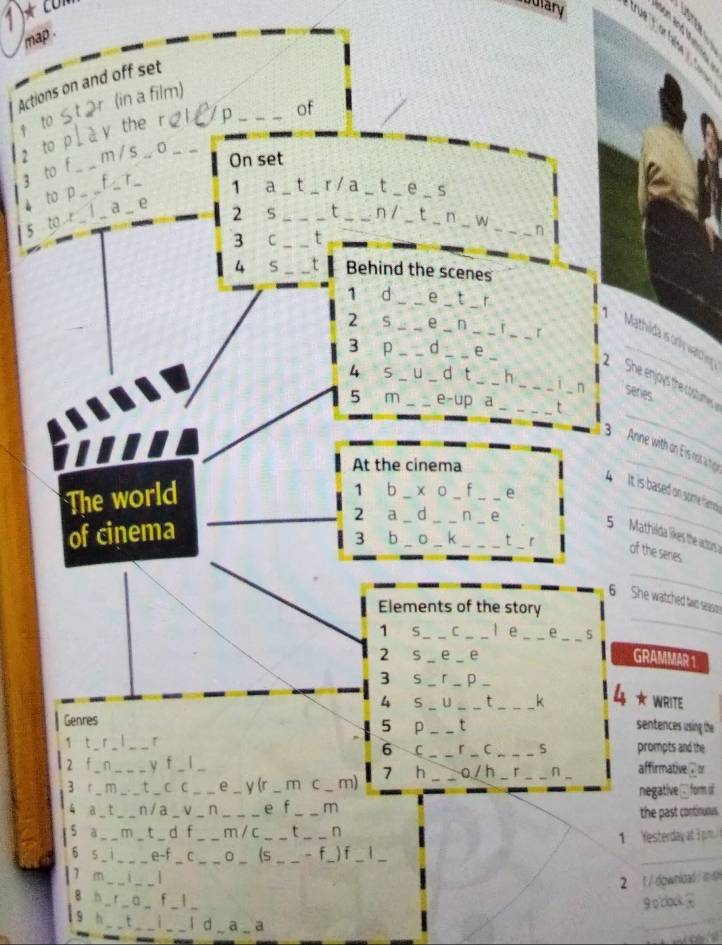 1 ★
map.
Actions on and off set
1 to star (in a film)
2 to play the role/p _ _ _ of
3 to f _ _ m / s _ o _ _
4 to p _ _ f _ r _
5 to r _ l _ a _ e
On set
1 a _ t _ r / a _ t _ e _ s
2 s _ _ _ t _ _ n / _ t _ n _ w _ _ _ n
3 c _ _ t
4 s _ _ t
Behind the scenes
1 d _ _ e _ t _ r
2 s _ _ e _ n _ _ i _ _ r
3 p _ _ d _ _ e _
4 s _ u _ d t _ _ h _ _ _ i _ n
5 m _ _ e-up a _ _ _ _ t
The world
of cinema
At the cinema
1 b _ x o _ f _ _ e
2 a _ d _ _ n _ e
3 b _ o _ k _ _ _ t _ r
Elements of the story
1 s _ _ c _ _ l e _ _ e _ _ s
2 s _ e _ e
3 s _ r _ p _
4 s _ u _ _ t _ _ _ k
5 p _ _ t
6 c _ _ r _ c _ _ _ s
7 h _ _ o / h _ r _ _ n _
Genres
1 t _ r _ l _ _ r
2 f _ n _ _ _ y f _ l _
3 r _ m _ _ t _ c c _ _ e _ y (r _ m c _ m)
4 a _ t _ _ n / a _ v _ n _ _ _ e f _ _ m
5 a _ _ m _ t _ d f _ _ m / c _ _ t _ _ n
6 s _ i _ _ _ e-f _ c _ _ o _ (s _ _ - f _) f _ l _
7 m _ _ i _ _ l
8 h _ r _ o _ f _ l _
9 h _ _ t _ _ i _ _ l d _ a _ a
1 Mathilda is only watching
2 She enjoys the costumes
series.
3 Anne with an E is not a
4 It is based on some
5 Mathilda likes the actors
of the series.
6 She watched two
GRAMMAR 1
4 ★ WRITE
sentences using the
prompts and the
affirmative + or
negative - form of
the past continuous.
1 Yesterday at 3 p.m.
2 I / download /
9 o'clock